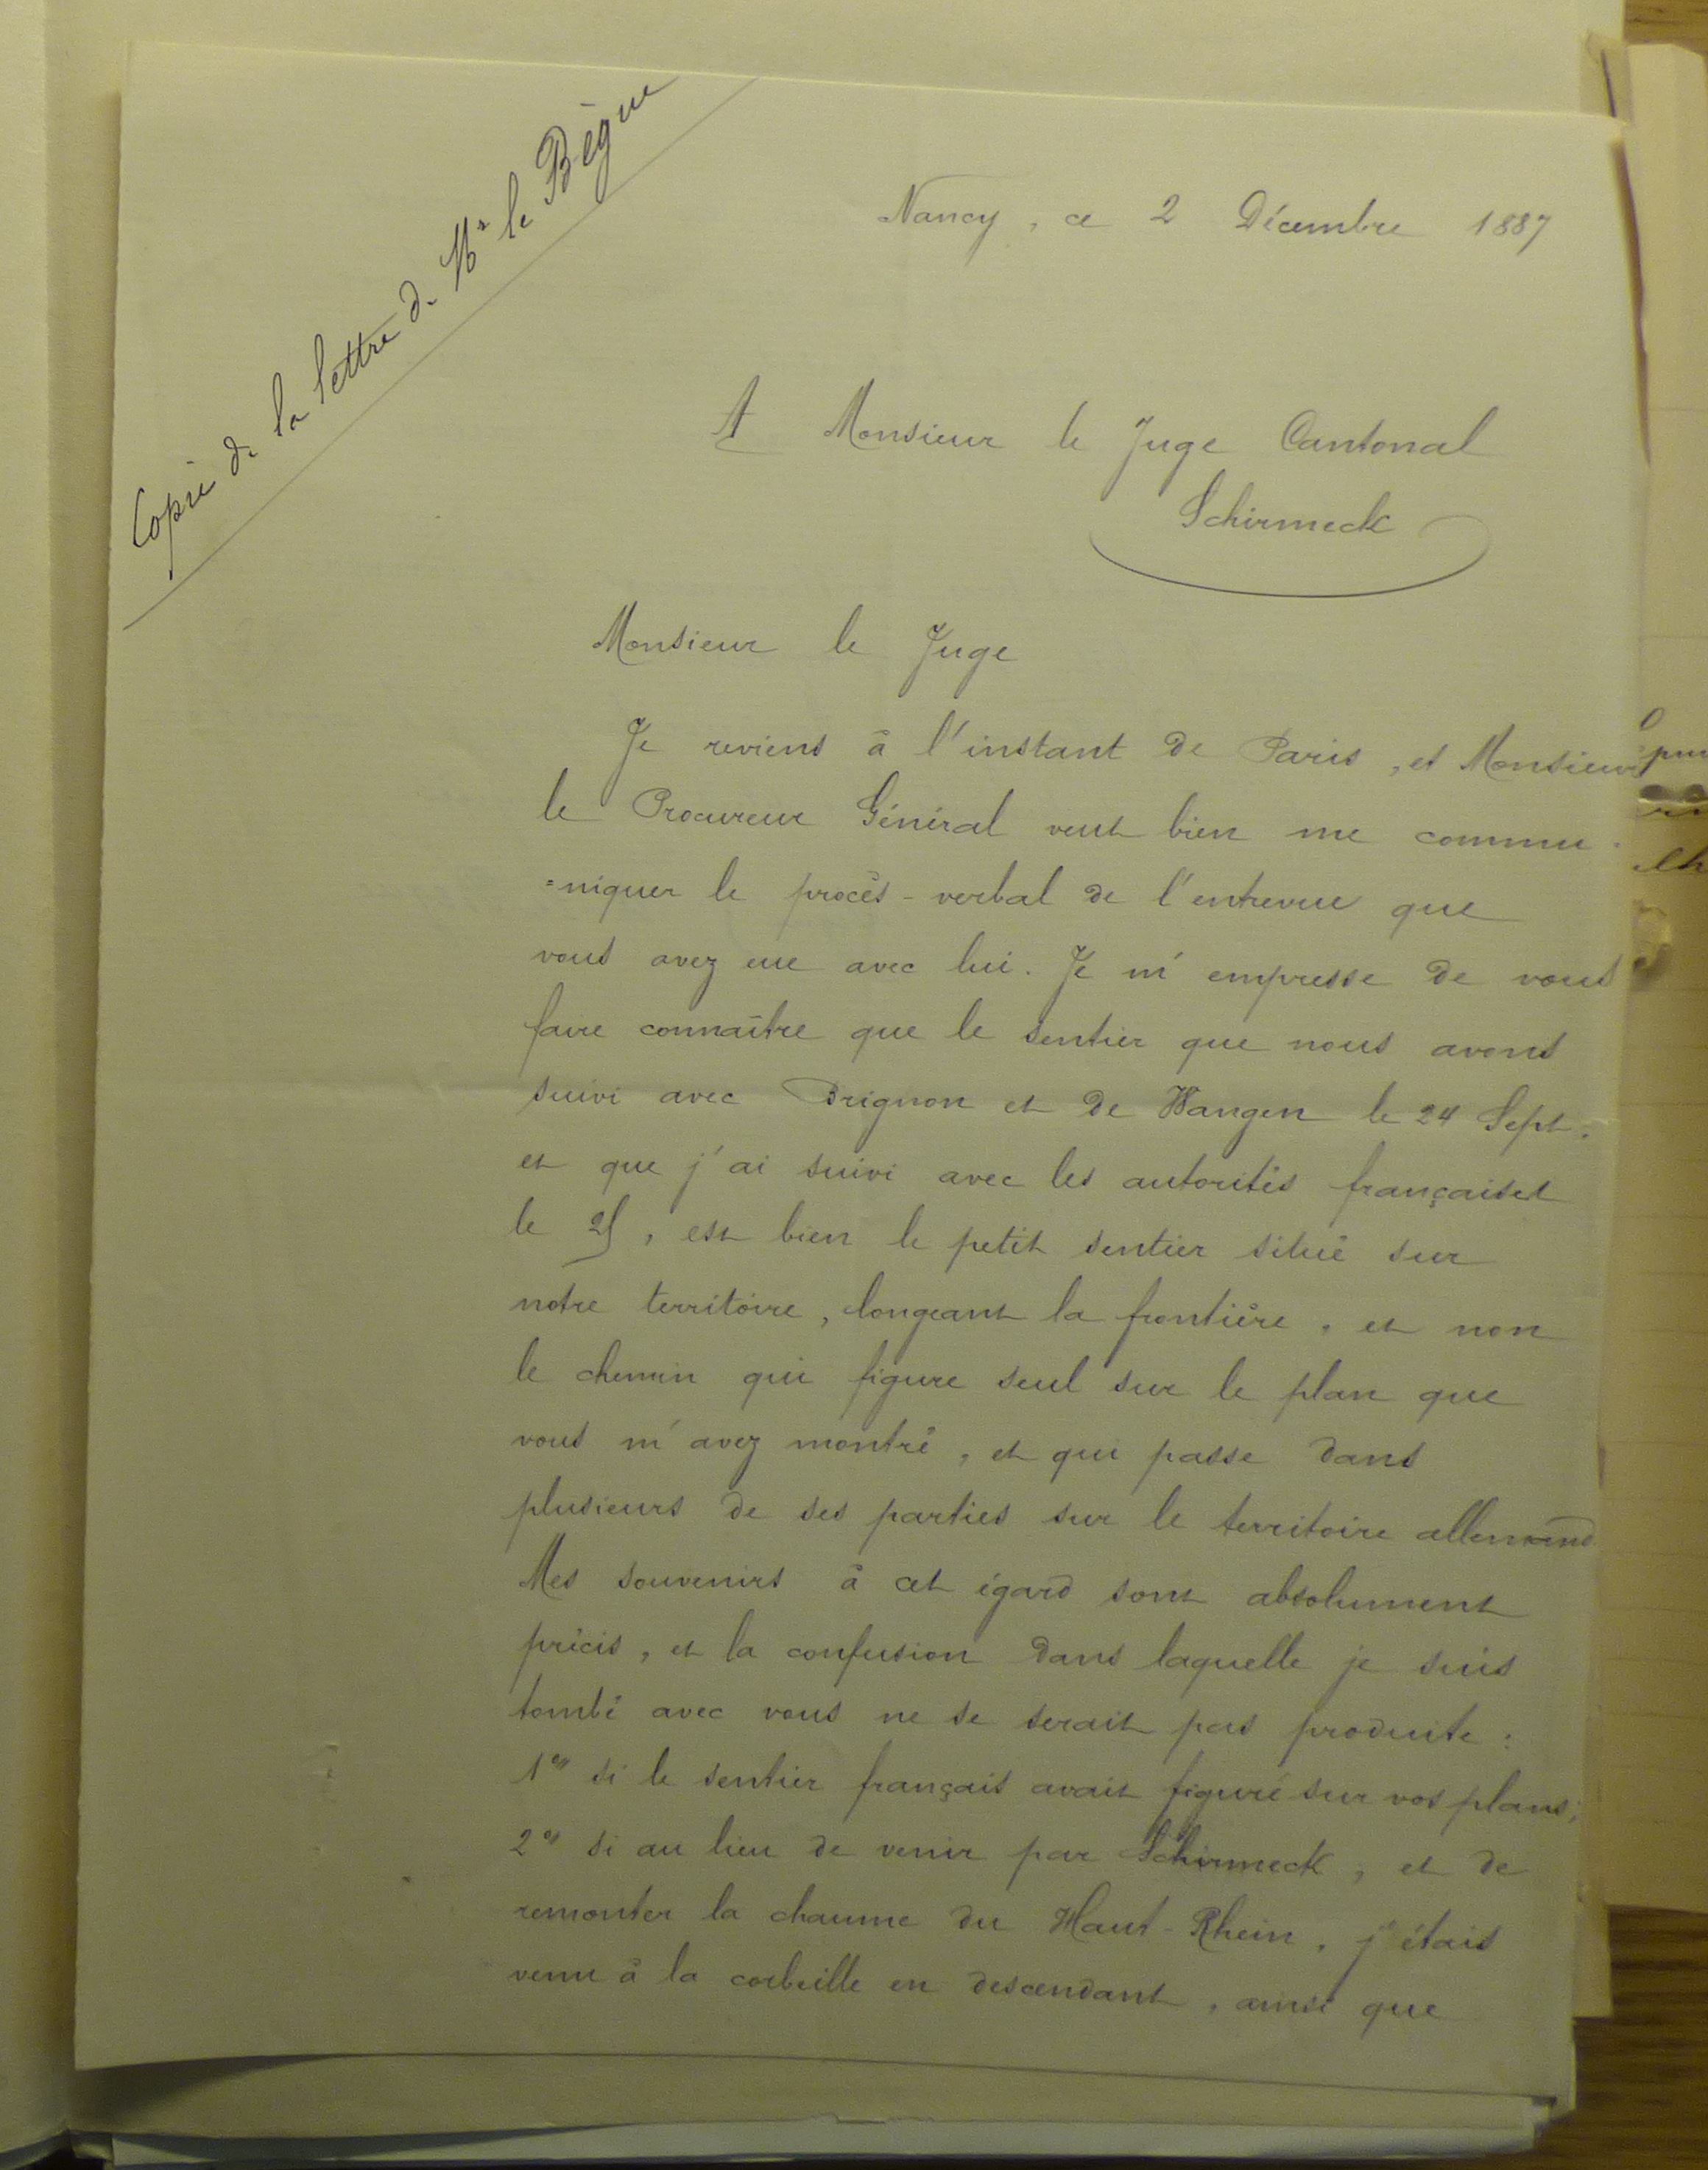 Copie de la lettre de Mr le Bègue
Nancy, ce 2 Décembre 1887
A Monsieur le Juge Cantonal
Schirmeck
Monsieur le Juge
Je reviens à l'instant de Paris, et Monsieur
le Procureur Général veut bien me commu-
=niquer le procès-verbal de l'entrevue que
vous avez eue avec lui. Je m'empresse de vous
faire connaître que le sentier que nous avons
suivi avec Brignon et de Wangen le 24 Sept.
et que j'ai suivi avec les autorités françaises
le 25, est bien le petit sentier situé sur
notre territoire, longeant la frontière, et non
le chemin qui figure seul sur le plan que
vous m'avez montré, et qui passe dans
plusieurs de ses parties sur le territoire allemand
Mes souvenirs à cet égard sont absolument
précis, et la confusion dans laquelle je suis
tombé avec vous ne se serait pas produite :
1° si le sentier français avait figuré sur vos plans;
2° si au lieu de venir par Schirmeck, et de
remonter la chaume du Haut-Rhein, j'étais
venu à la corbeille en descendant, ainsi que